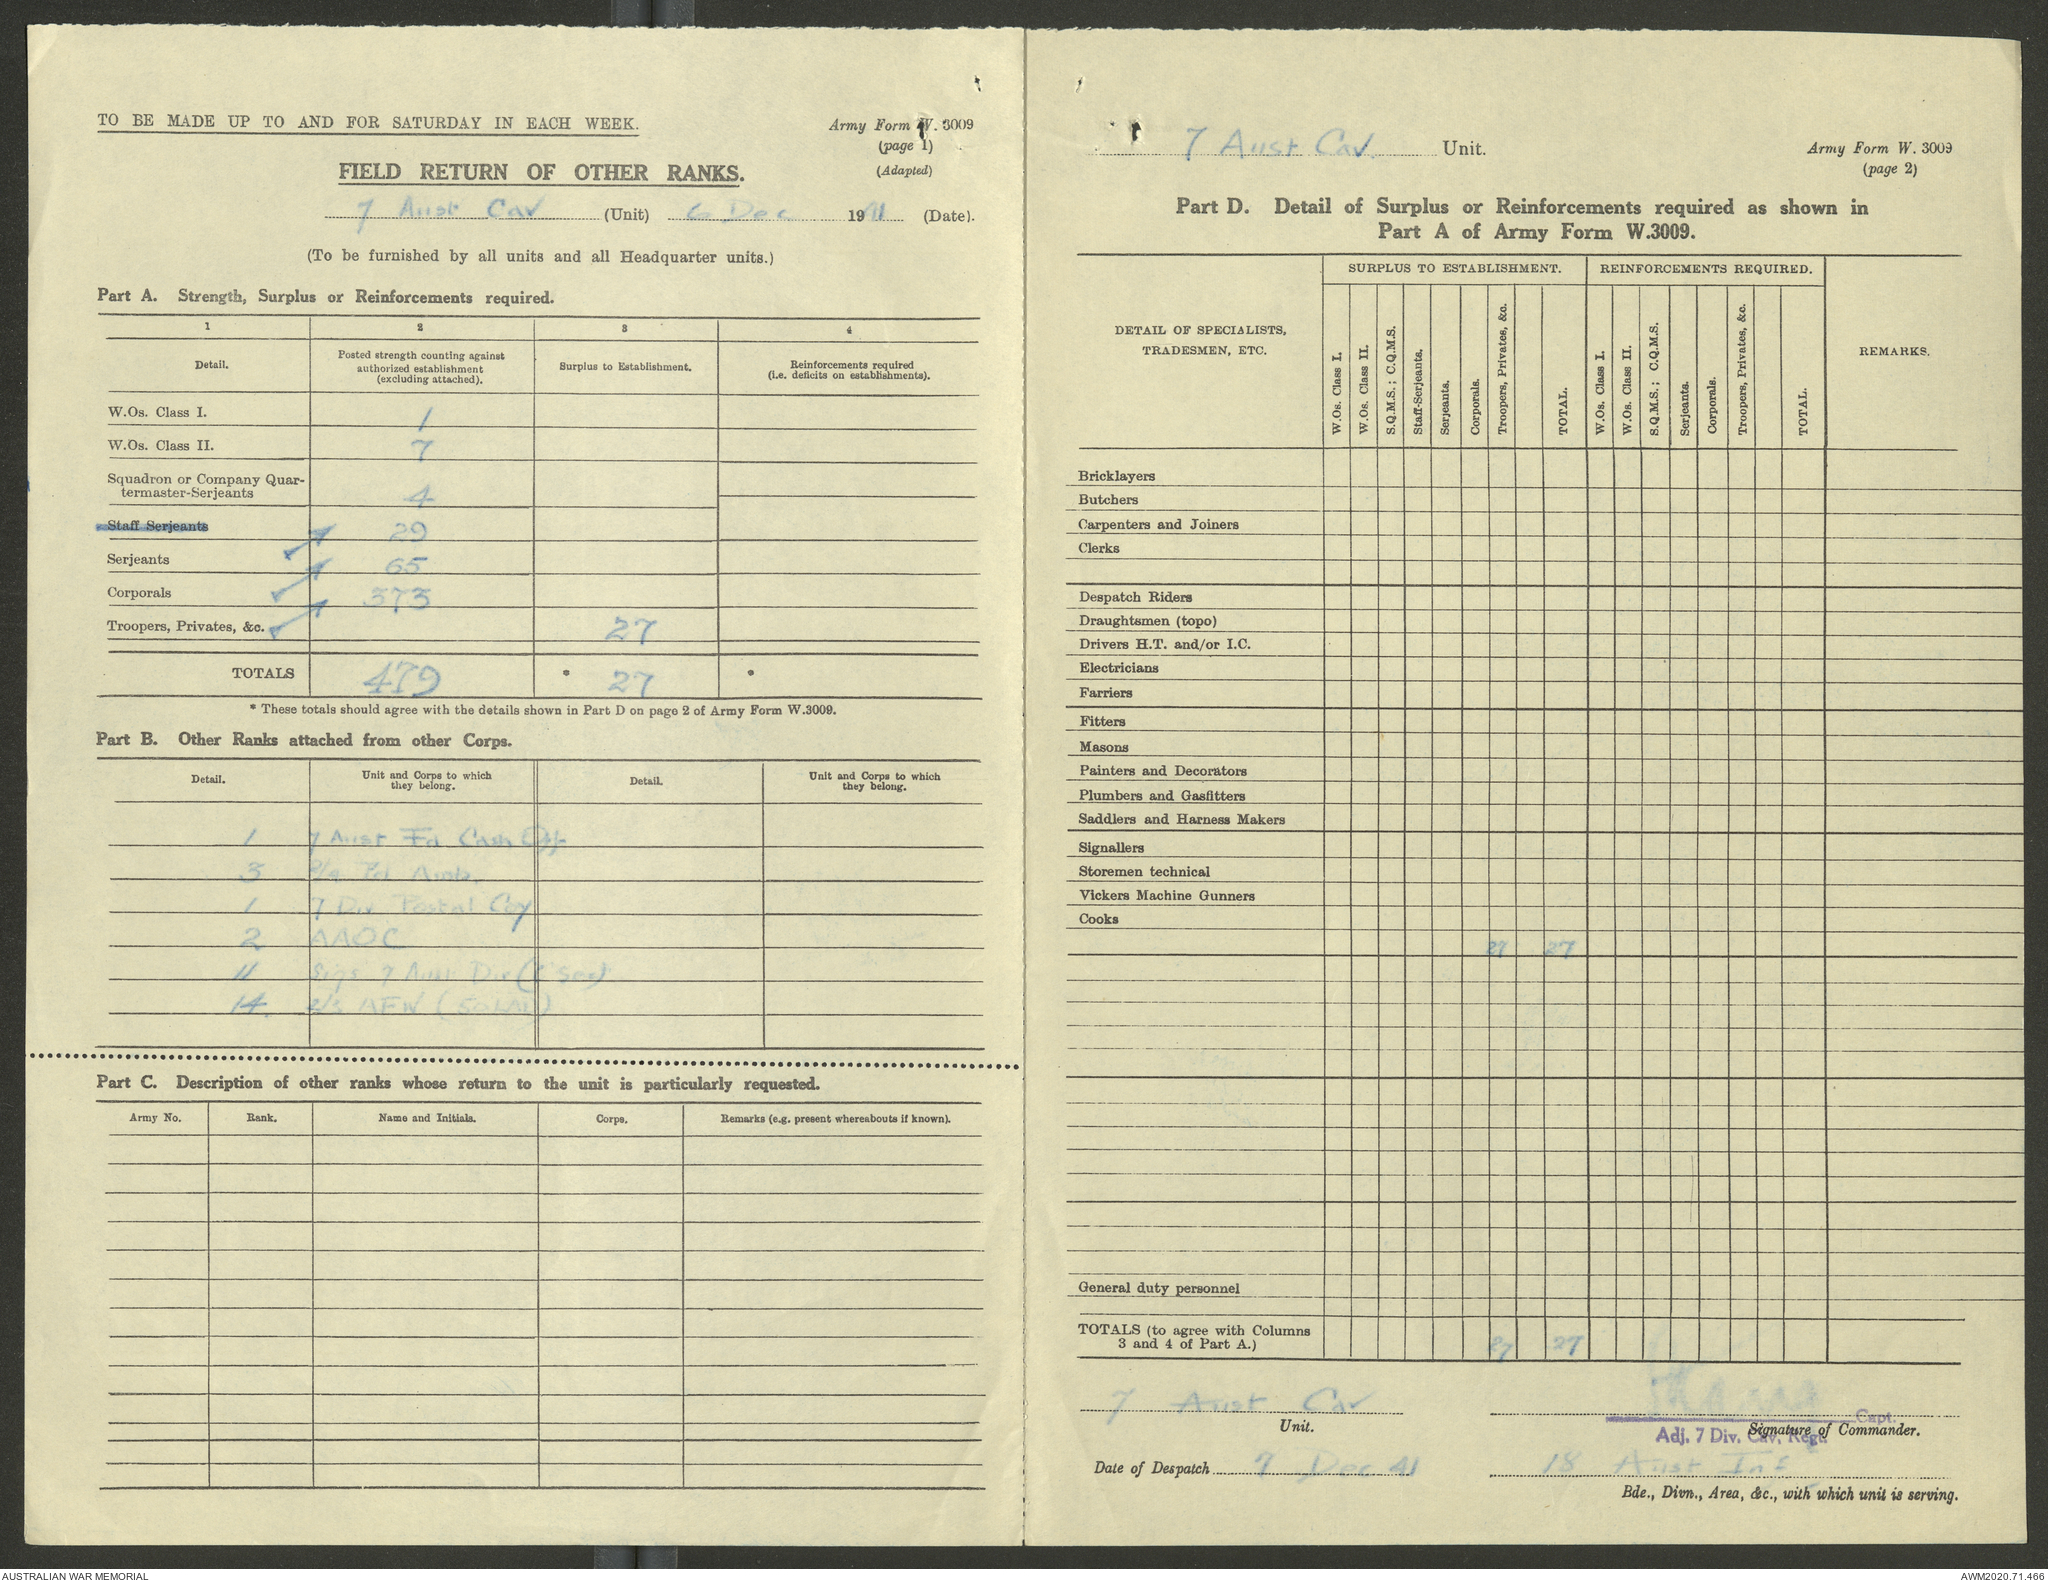 TO BE MADE UP TO AND FOR SATURDAY IN EACH WEEK.
Army Form W. 3009
(page 1)
(Adapted)
FIELD RETURN OF OTHER RANKS.
7 Aust Cav (Unit) 6 Dec 1941 (Date).
(To be furnished by all units and all Headquarter units.)
Part A. Strength, Surplus or Reinforcements required.
1 2 3 4
Detail. Posted strength counting against authorized establishment (excluding attached). Surplus to Establishment. Reinforcements required (i.e. deficits on establishments).
W.Os. Class I. 1
W.Os. Class II. 7
Squadron or Company Quar-
termaster-Serjeants 4
Staff Serjeants 29
Serjeants 65
Corporals 373
Troopers, Privates, &c. 27
TOTALS 479 * 27 *
* These totals should agree with the details shown in Part D on page 2 of Army Form W.3009.
Part B. Other Ranks attached from other Corps.
Detail. Unit and Corps to which they belong. Detail. Unit and Corps to which they belong.
1 7 Aust Fd Cash Off
3 Amb.
1 7 Div Postal Coy
2 AAOC
11 Sigs 7 Aust Div
14
Part C. Description of other ranks whose return to the unit is particularly requested.
Army No. Rank. Name and Initials. Corps. Remarks (e.g. present whereabouts if known).
7 Aust Cav. Unit.
Army Form W. 3009
(page 2)
Part D. Detail of Surplus or Reinforcements required as shown in
Part A of Army Form W.3009.
DETAIL OF SPECIALISTS, TRADESMEN, ETC. SURPLUS TO ESTABLISHMENT. REINFORCEMENTS REQUIRED. REMARKS.
W.Os. Class I. W.Os. Class II. S.Q.M.S.; C.Q.M.S. Staff-Serjeants. Serjeants. Corporals. Troopers, Privates, &c. TOTAL. W.Os. Class I. W.Os. Class II. S.Q.M.S.; C.Q.M.S. Serjeants. Corporals. Troopers, Privates, &c. TOTAL.
Bricklayers
Butchers
Carpenters and Joiners
Clerks
Despatch Riders
Draughtsmen (topo)
Drivers H.T. and/or I.C.
Electricians
Farriers
Fitters
Masons
Painters and Decorators
Plumbers and Gasfitters
Saddlers and Harness Makers
Signallers
Storemen technical
Vickers Machine Gunners
Cooks
27 27
General duty personnel
TOTALS (to agree with Columns
3 and 4 of Part A.) 27 27
7 Aust Cav
Unit.
Capt.
Signature of Commander.
Adj. 7 Div. Cav. Regt.
Date of Despatch 7 Dec 41
18 Aust Inf
Bde., Divn., Area, &c., with which unit is serving.
AUSTRALIAN WAR MEMORIAL
AWM2020.71.466